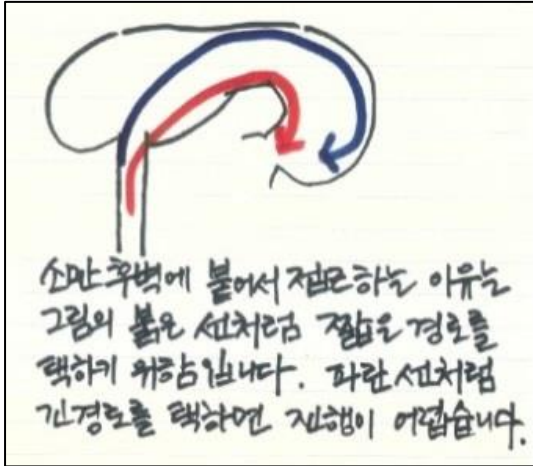 소만후벽에 붙어서 접근하는 이유는
그림의 붉은 선처럼 짧은 경로를
택하기 위함입니다. 파란선처럼
긴경로를 택하면 진행이 어렵습니다.